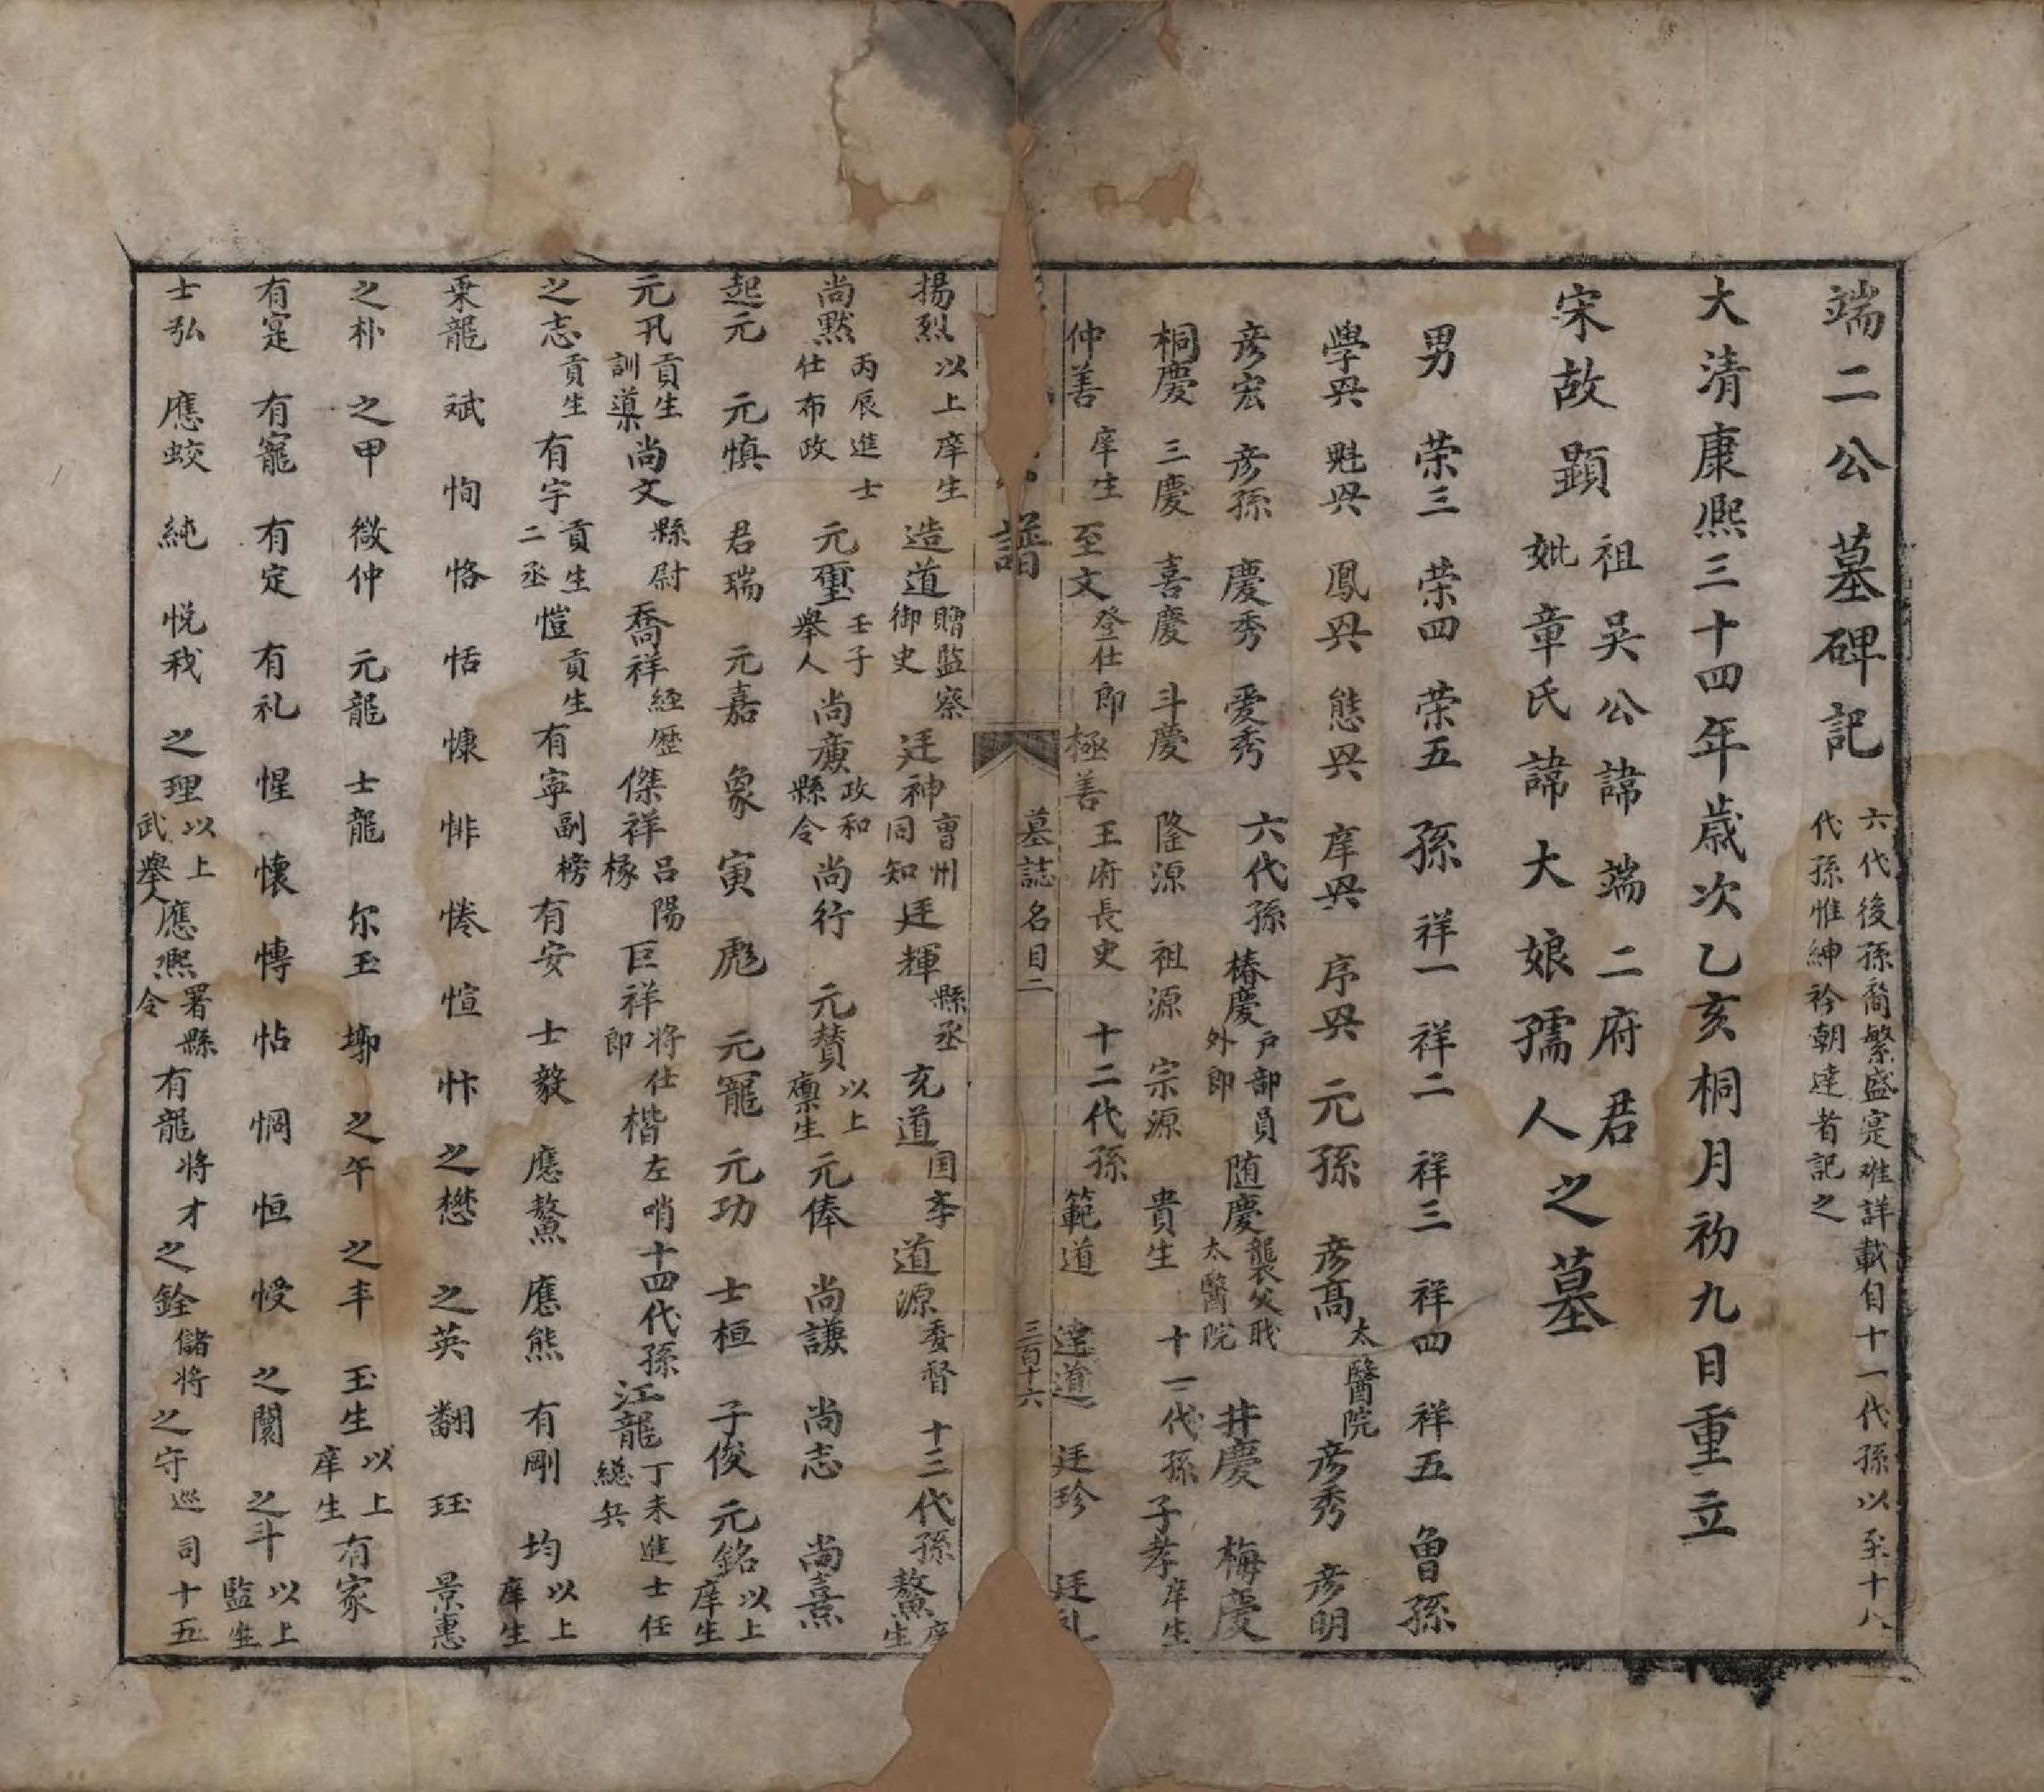 端二公墓碑記 六代後孫裔繁盛寔难詳載自十一代孫以至十八代孫惟紳衿朝達者記之
大清康熙三十四年歲次乙亥桐月初九日重立
宋故顕祖吴公諱端二府君妣章氏諱大娘孺人之墓
男 荣三 荣四 荣五 孫 祥一 祥二 祥三 祥四 祥五 曾孫
學㒷 魁㒷 鳳㒷 態㒷 庠㒷 序㒷 元孫 彦髙 太醫院 彦秀 彦明
彦宏 彦孫 慶秀 爱秀 六代孫 椿慶 户部員外郎 随慶 襲父戝太醫院 井慶 梅慶
桐慶 三慶 喜慶 斗慶 隆源 祖源 宗源 貴生 十一代孫 子孝 庠生
仲善 庠生 至文 登仕郎 極善 王府長史 十二代孫 範道 達道 廷珍 廷礼
譜 墓誌名目二 三百十六
揚烈 以上庠生 造道 贈監察御史 廷神 曹州同知 廷輝 縣丞 充道 国李 道源 委督 十三代孫 鰲 庠生
尚黙 丙辰進士仕布政 元璽 壬子舉人 尚廣 政和縣令 尚行 元賛 以上廪生 元俸 尚謙 尚志 尚熹
起元 元慎 君瑞 元嘉 象寅 彪 元寵 元功 士桓 子俊 元銘 以上庠生
元孔 貢生訓導 尚文 縣尉 喬祥 經歷 傑祥 吕陽椽 巨祥 将仕郎 楷 左哨 十四代孫 江龍 丁未進士任總兵
之志 貢生 有宇 貢生二丞 愷 貢生 有寧 副榜 有安 士毅 應鰲 應熊 有剛 均 以上庠生
乗龍 斌 恂 恪 恬 慷 悱 惓 愃 忭 之懋 之英 翻 珏 景惠
之朴 之甲 徴仲 元龍 士龍 尔玉 㙮 之午 之丰 玉生 以上庠生 有家
有寔 有寵 有定 有礼 惺 懐 慱 怗 惆 恒 㥅 之闌 之斗 以上監生
士弘 應蛟 純 悦我 之理 以上武舉人 應熙 署縣令 有龍 将才 之銓 儲将 之守 巡司 十五